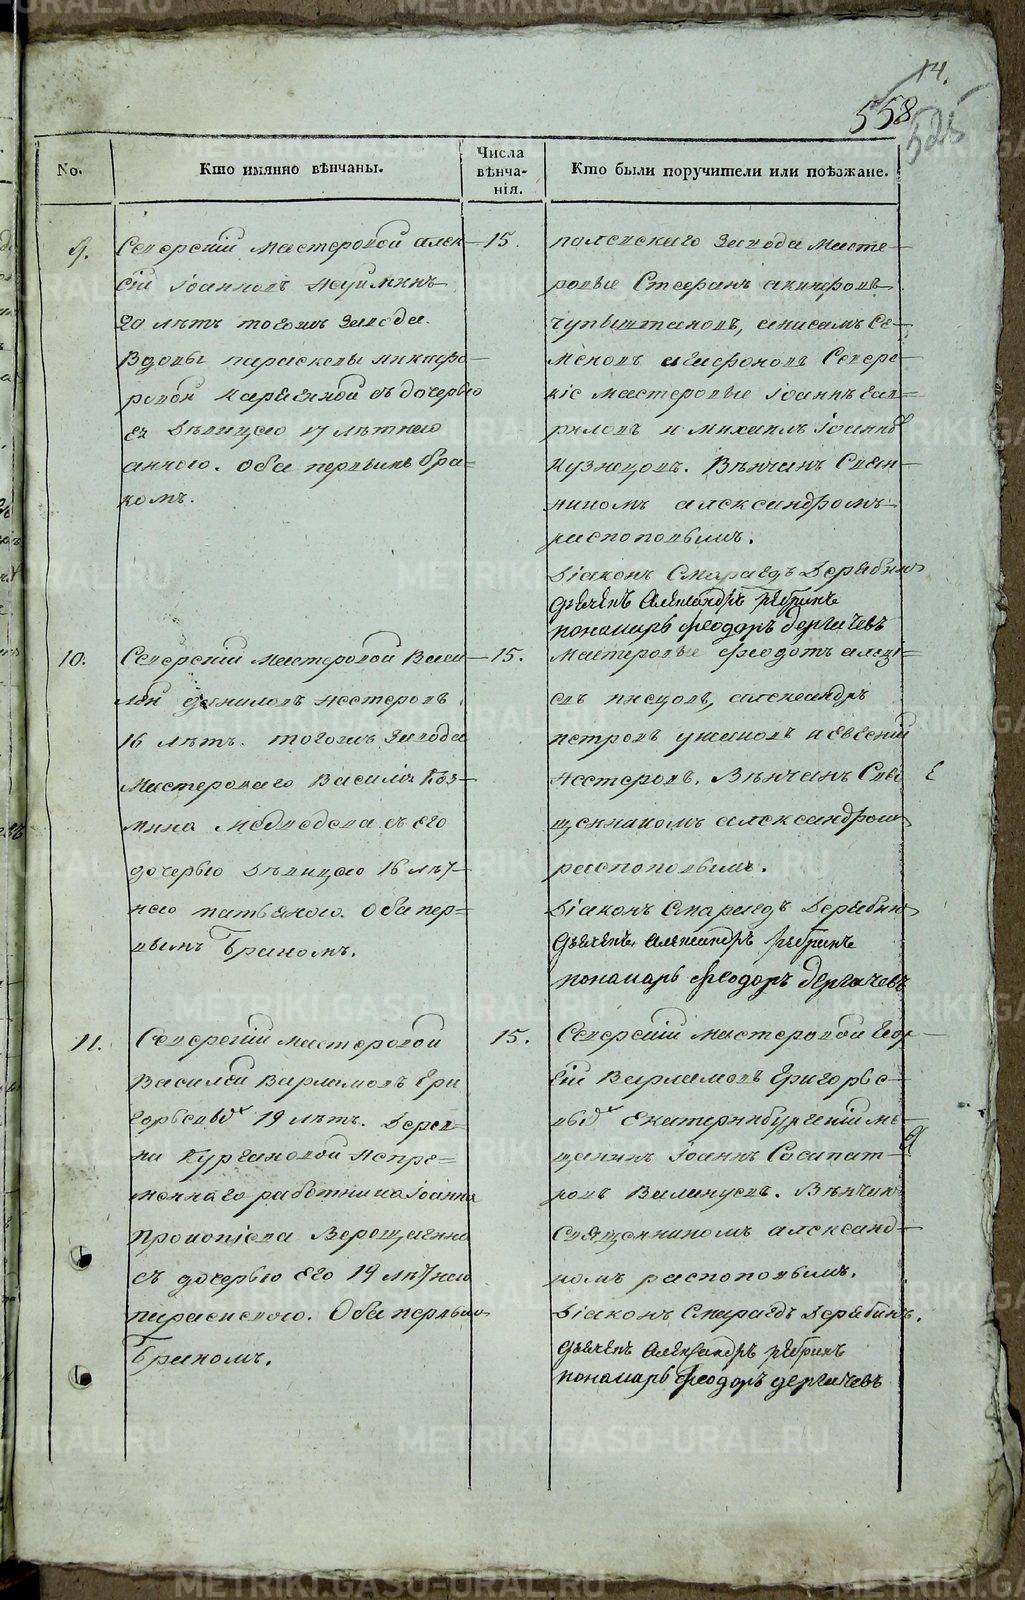 14.
558
525
No.
Кто имянно вѣнчаны.
Числа
вѣнча-
нія.
Кто были поручители или поѣзжане.
9.
Сѣверскій мастеровой алек-
сій Іоанновъ
20 лѣтъ тогожъ завода.
Вдовы параскевы никифо-
ровой съ дочерью
ея дѣвицею 17 лѣтнею
анною. Оба первымъ бра-
комъ.
15.
полевскаго завода масте-
ровые Стефанъ
анисимъ Се-
меновъ Северс-
кіе мастеровые Іоаннъ гав-
риловъ и михаилъ Іоанновъ
кузнецовъ. Вѣнчанъ Свящ-
никомъ александромъ
распоповымъ.
Діаконъ Смарагдъ Дерябинъ
Дьячекъ Александръ рябринъ
пономарь феодоръ Дергачевъ
10.
Северскій мастеровой Васи-
лей даниловъ нестеровъ
16 лѣтъ. тогожъ завода
мастероваго Василія Коз-
мина медведева съ его
дочерью дѣвицею 16 лѣт-
нею татьяною. Оба пер-
вымъ бракомъ.
15.
мастеровые феодотъ алексі-
евъ писцовъ, александръ
петровъ и Евгеній
нестеровъ. Вѣнчанъ Свя-
щенникомъ александромъ
распоповымъ.
Діаконъ Смарагдъ Дерябинъ
Дьячекъ Александръ рябринъ
пономарь феодоръ Дергачевъ
11.
Северскій мастеровой
Василей варламовъ Гри-
горьевыхъ 19 лѣтъ. Дерев-
ни Кургановой непре-
меннаго работника Іоанна
прокопіева Верещагина
съ дочерью его 19 лѣтнею
параскевою. Оба первымъ
бракомъ.
15.
Северскій мастеровой Геор-
гій Варламовъ Григорье-
выхъ Екатеринбургскій ме-
щанинъ Іоаннъ Сосипат-
ровъ Вѣнчанъ
Священникомъ александ-
ромъ распоповымъ.
Діаконъ Смарагдъ Дерябинъ.
Дьячекъ Александръ рябринъ
пономарь феодоръ дергачевъ
METRIKI.GASO-URAL.RU